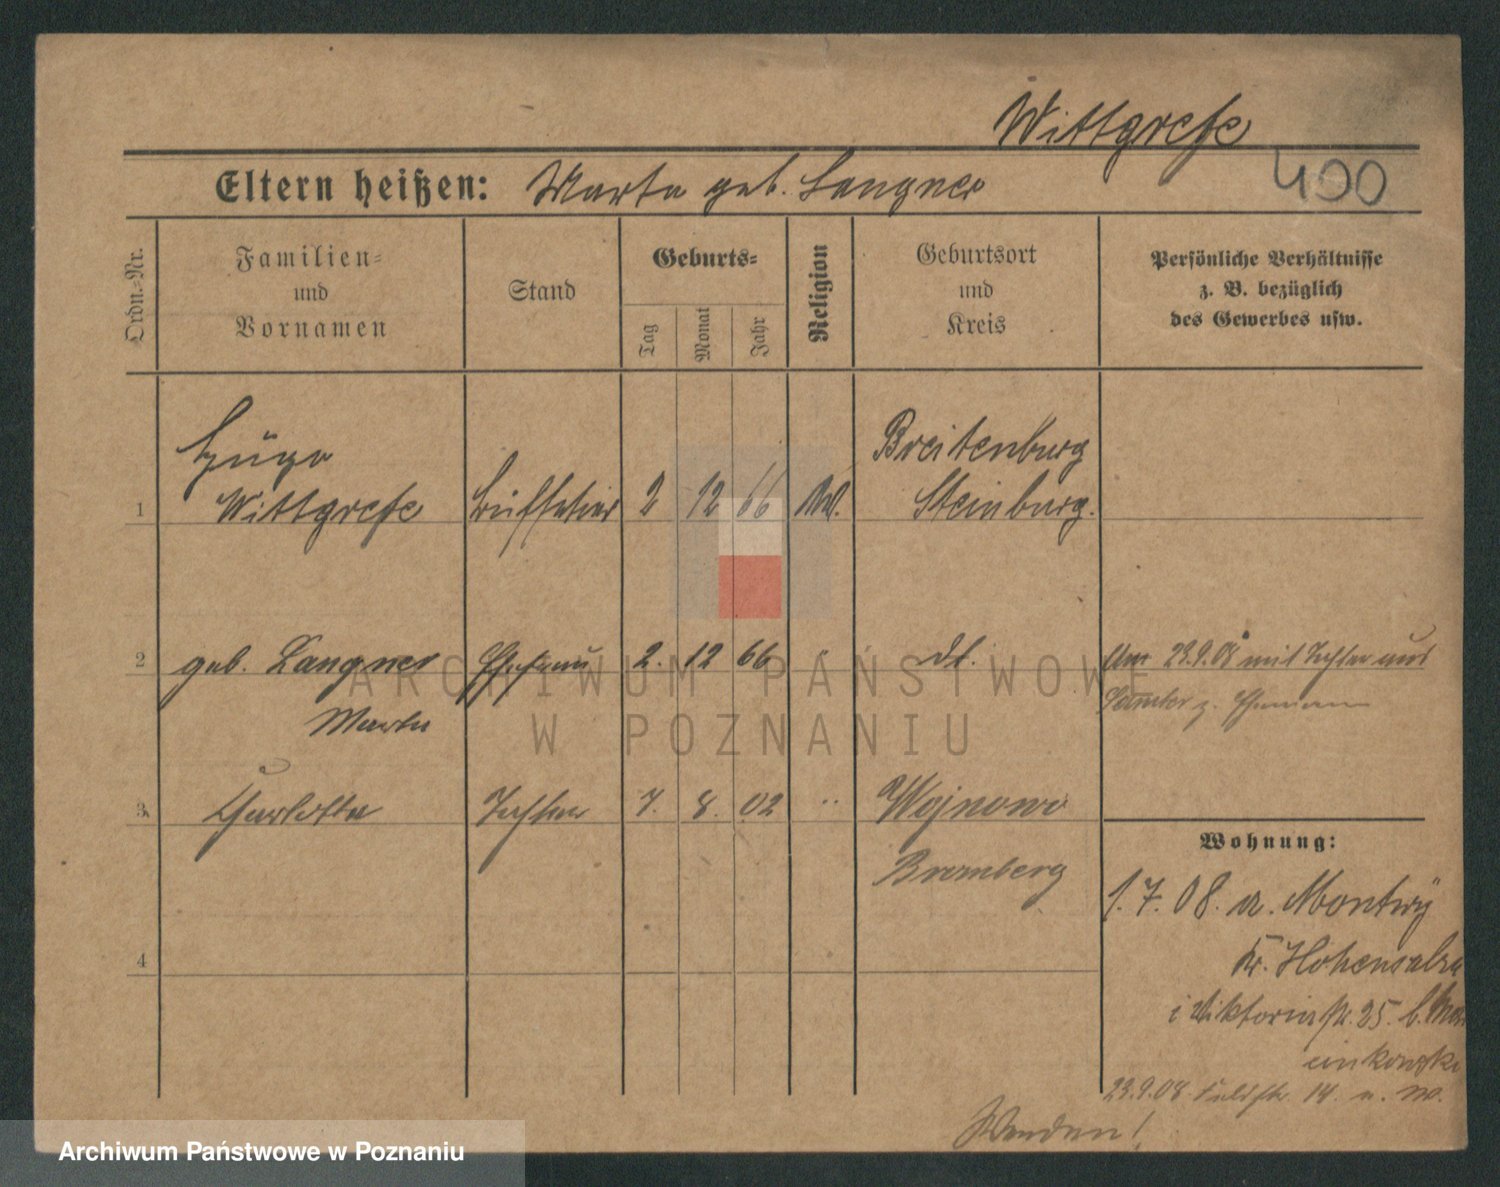 Wittgrefe
400
Eltern heißen: Marta geb. Langner
Ordn.-Nr.
Familien-
und
Vornamen
Stand
Geburts-
Tag
Monat
Jahr
Religion
Geburtsort
und
Kreis
Persönliche Verhältnisse
z. B. bezüglich
des Gewerbes usw.
Hugo
Breitenburg
1 Wittgrefe 2 12 66 Steinburg.
2 geb. Langner Ehefrau 2. 12 66 " dt. Am 23.9.08 mit Tochter und
Marta z. Ehemann
3. Charlotte Tochter 7. 8. 02 " Wojnowo
Bromberg
Wohnung:
1.7.08. a. Montwy
Kr. Hohensalza
4
i Viktoriastr. 25. b.
cinkowski
23.9.08 Feldstr. 14. a. W.
Wenden!
ARCHIWUM PAŃSTWOWE
W POZNANIU
Archiwum Państwowe w Poznaniu